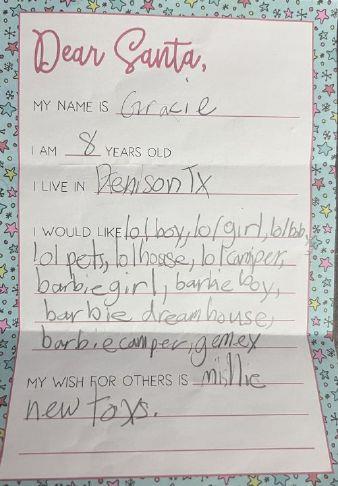 Dear Santa,
MY NAME IS Gracie
I AM 8 YEARS OLD
I LIVE IN Denison Tx
I WOULD LIKE lol boy, lol girl, lol bb,
lol pets, lol house, lol camper,
barbie girl, barbie boy,
barbie dream house,
barbie camper, gemex
MY WISH FOR OTHERS IS millie
new toys.